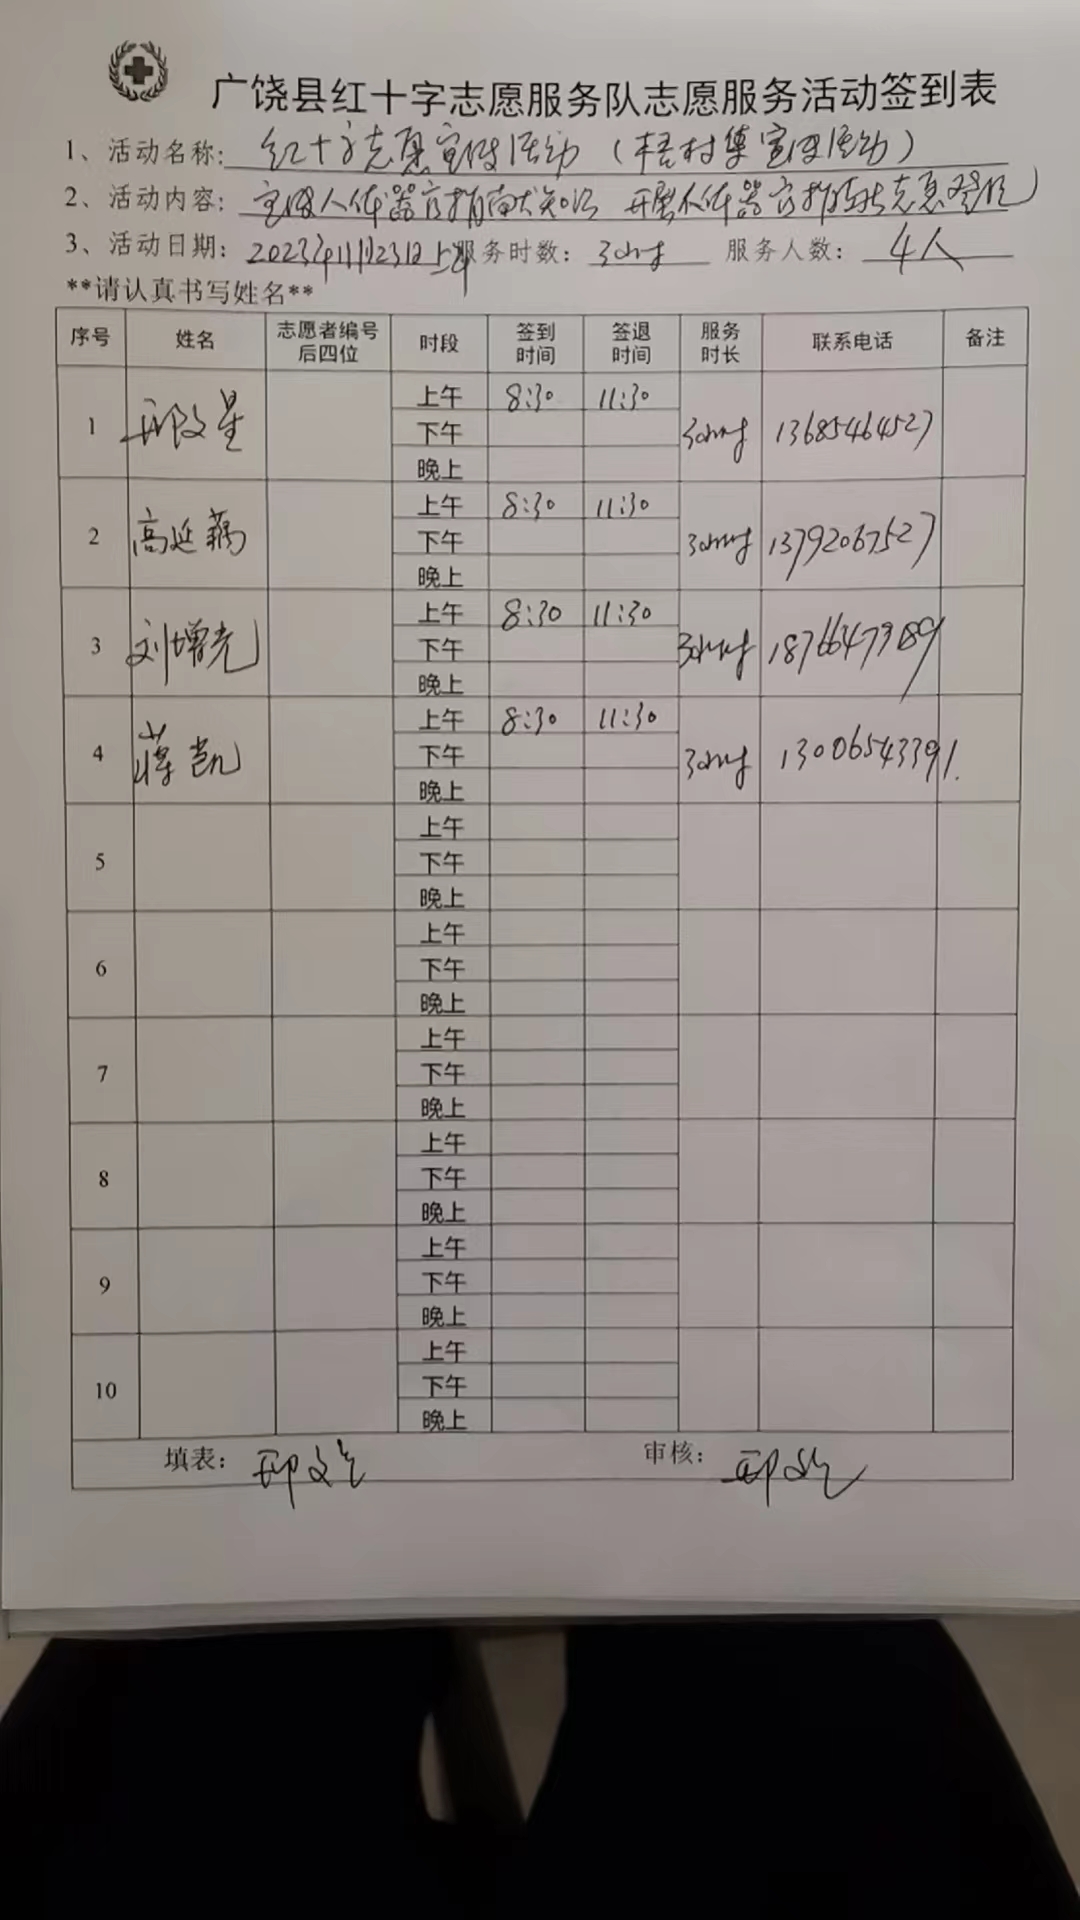 广饶县红十字志愿服务队志愿服务活动签到表
1、活动名称: 红十字志愿宣传活动（梧村集宣传活动）
2、活动内容: 宣传人体器官捐献知识 开展人体器官捐献志愿登记
3、活动日期: 2023年11月23日上午 服务时数: 3小时 服务人数: 4人
**请认真书写姓名**
序号 姓名 志愿者编号后四位 时段 签到时间 签退时间 服务时长 联系电话 备注
1 邢文星 上午 8:30 11:30 3小时 13685464527
下午
晚上
2 高延 上午 8:30 11:30 3小时 13792067527
下午
晚上
3 刘增光 上午 8:30 11:30 3小时 18766473189
下午
晚上
4 蒋凯 上午 8:30 11:30 3小时 13006543391.
下午
晚上
5 上午
下午
晚上
6 上午
下午
晚上
7 上午
下午
晚上
8 上午
下午
晚上
9 上午
下午
晚上
10 上午
下午
晚上
填表: 邢文星 审核: 邢文星